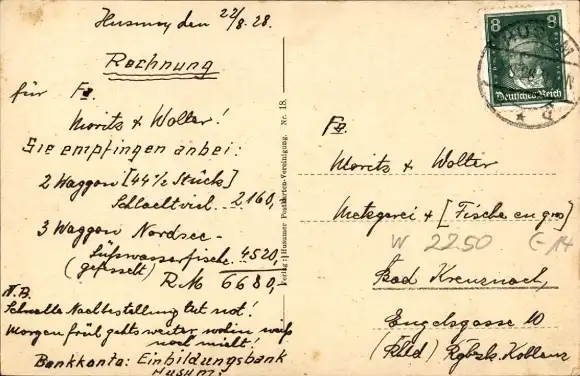 Husum, den 22/8. 28.
Rechnung
für Fa.
Moritz & Wolter!
Sie empfingen anbei:
2 Waggon [44½ Stück]
Schlachtvieh 2160,
3 Waggon Nordsee-
Süßwasserfische 4520,
(gefesselt) R.M. 6680,
N.B.
Schnelle Nachbestellung tut not!
Morgen früh gehts weiter, wohin weiß
noch nicht!
Bankkonto: Einbildungsbank
Husum:
Verlag: Husumer Postkarten-Vereinigung. Nr. 18.
8 8
HUSUM
Deutsches Reich
* d
Fa.
Moritz & Wolter
Metzgerei & [Fische en gros]
W 2250 E-14
Bad Kreuznach,
Engelsgasse 10
(Rhld) Rgbzk. Koblenz